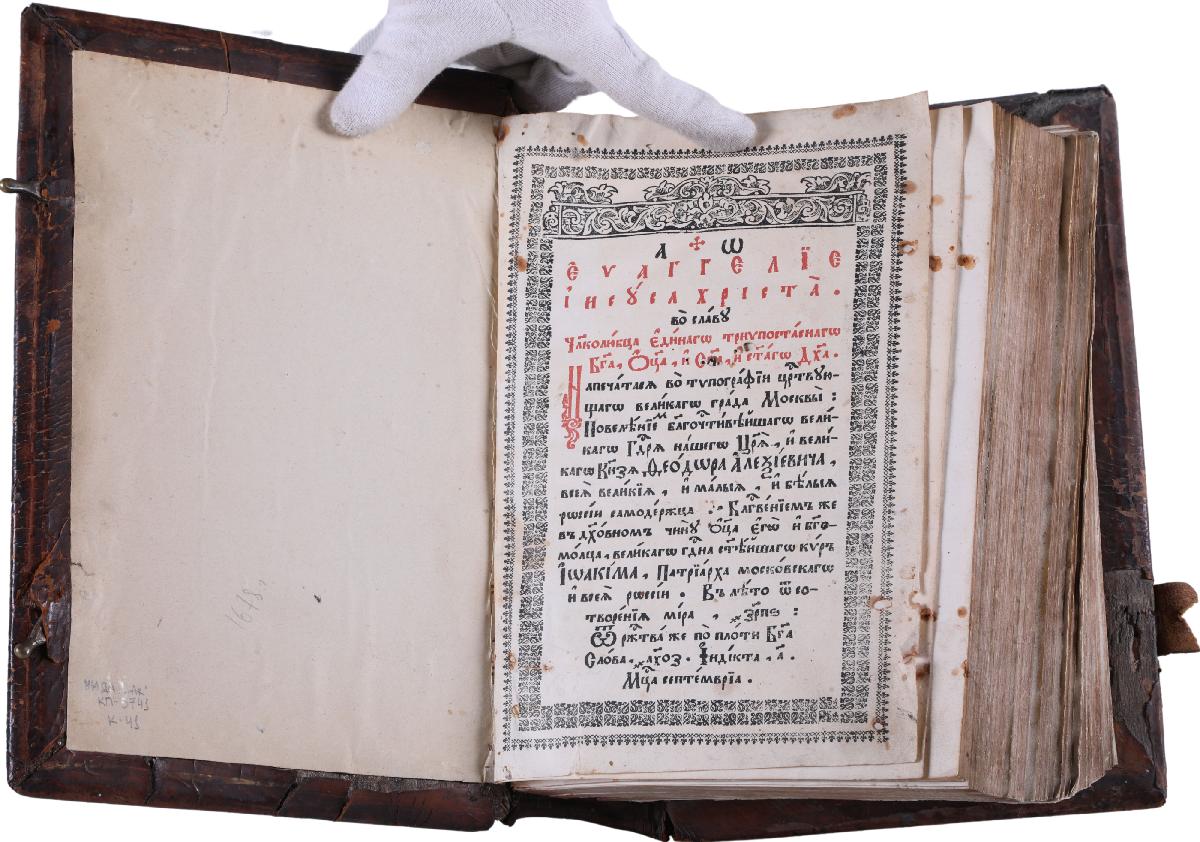 1678
КП-5743
К-43
А ✢ Ѡ
Є У А Г Г Є Л І Є
І И С У́ С А Х Р І С Т А̀ .
во̀ сла́ву
Чл҃колю́бца Є҆ди́нагѡ трїѵпоста́снагѡ
Бг҃а, Ѻ҆ц҃а̀, и҆ Сн҃а, и҆ ст҃а́гѡ Дх҃а .
Напеча́тасѧ во̀ тѵпогра́фїи црⷭ҇твꙋю-
щагѡ вели́кагѡ гра́да Москвы̀ :
Повелѣ́нїеⷨ бл҃гочⷭ҇ти́вѣйшагѡ вели́-
кагѡ Гдⷭ҇рѧ на́шегѡ Цр҃ѧ̀, и҆ вели́-
кагѡ Кн҃зѧ Ѳео́дѡра А҆леѯі́евича ,
всеѧ̀ вели́кїѧ , и҆ ма́лыѧ , и҆ бѣ́лыѧ
рѡссі́и самоде́ржца . Блгⷭ҇ве́нїемъ же
въ дх҃о́вномъ чи́нꙋ Ѻ҆ц҃а̀ Є҆гѡ̀ и҆ бг҃о-
мо́лца , вели́кагѡ гдⷭ҇на ст҃ѣ́йшагѡ кѵ́ръ
І҆ѡаки́ма , Патрїа́рха моско́вскагѡ
и҆ всеѧ̀ рѡссі́и . Въ лѣ́то ѿ со-
творе́нїѧ мі́ра , ҂зр҃пѕ :
Ѿ ржⷭ҇тва̀ же по̀ пло́ти Бг҃а
Сло́ва , ҂ах҃оз . І҆нді́кта , а҃ .
Мцⷭ҇а септе́мврїа .